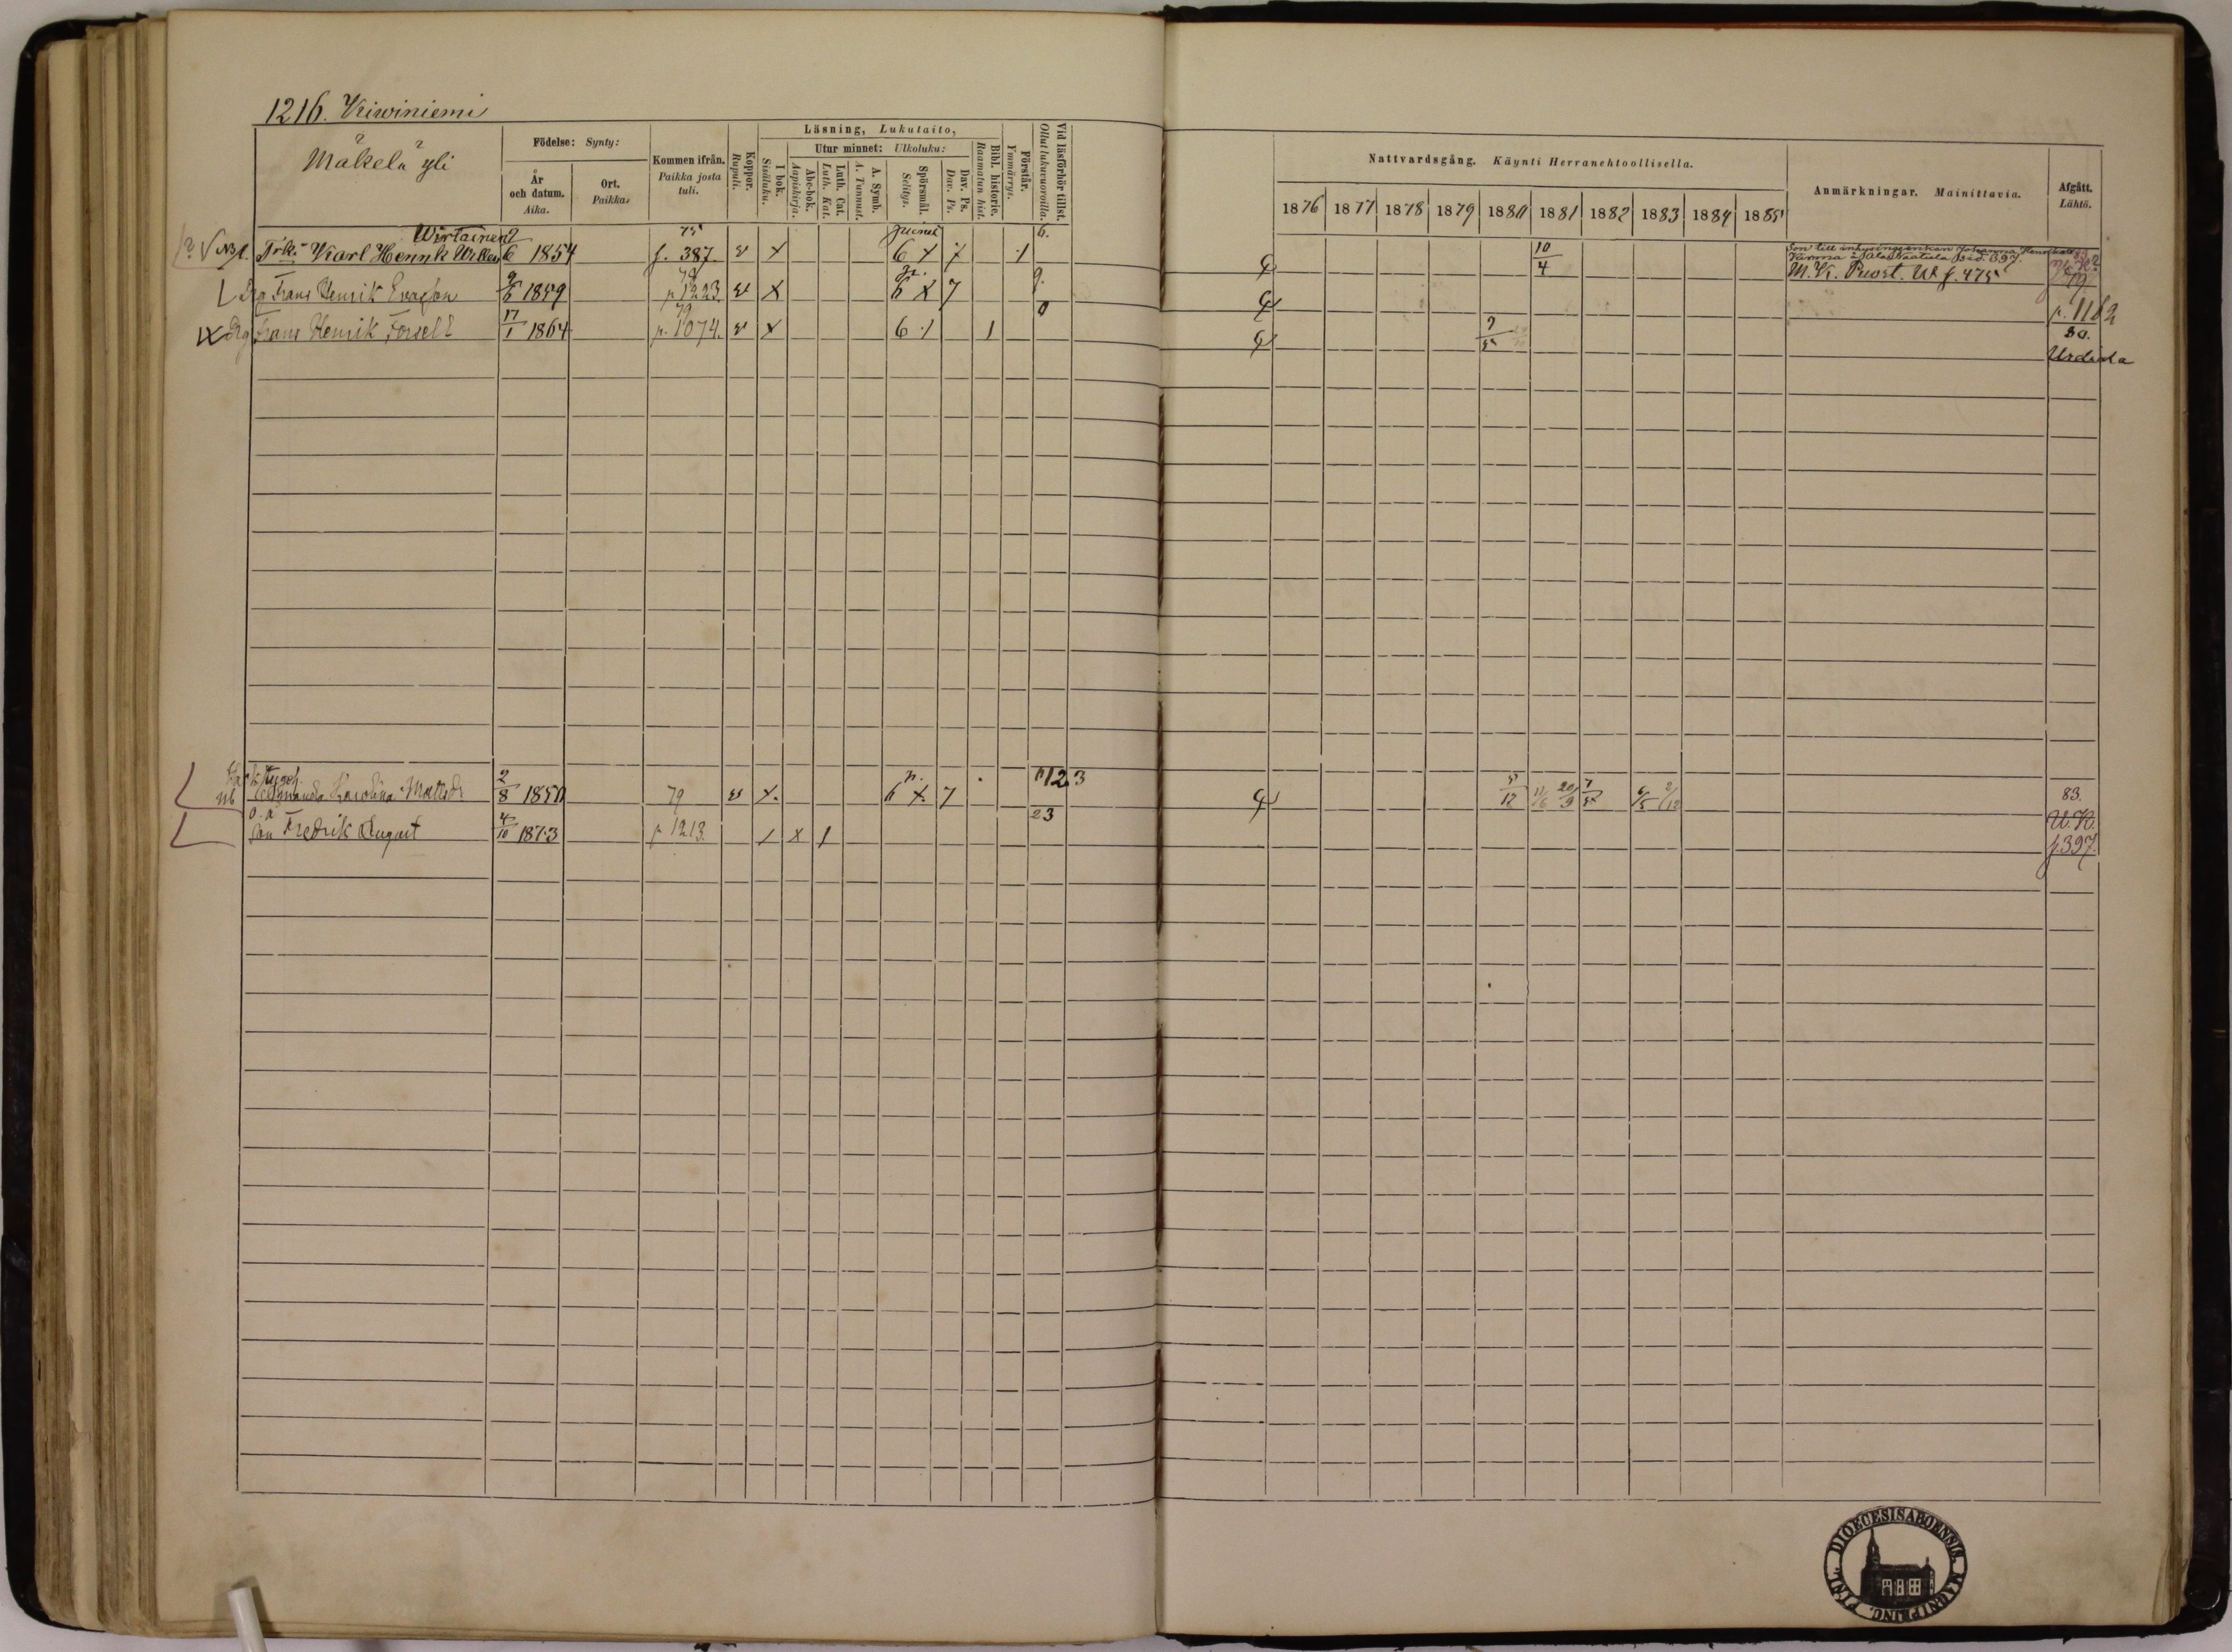 1216. Kiwiniemi
Mäkelä yli
Födelse: Synty:
År och datum. Aika.
Ort. Paikka.
Kommen ifrån. Paikka josta tuli.
Koppor. Rupuli.
Läsning, Lukutaito,
I bok. Sisäluku.
Utur minnet: Ulkoluku:
Abc-bok. Aapiskirja.
Luth. Cat. Luth. Kat.
A. Symb. A. Tunnust.
Spörsmål. Selitys.
Dav. Ps. Dav. Ps.
Bibl. historie. Raamatun hist.
Förstår. Ymmärrys.
Vid läsförhör tillst. Ollut lukuvuoroilla.
Nattvardsgång. Käynti Herranehtoollisella.
1876 1877 1878 1879 1880 1881 1882 1883 1884 1885
Anmärkningar. Mainittavia.
Afgått. Lähtö.
Wirtainen 75 6.
Karl Henrik 2/6 1854 f. 387. v x 6 7 10/4
M. K. f. 475
79 9.
Drg Frans Henrik 9/6 1859 p. 1223. v x 6 x 7 p. 1162
79 0
Drg Frans Henrik Forsell 17/1 1864 p. 1074. v x 6 1 1 80.
Urdiala
Karolina Mattsdr 2/8 1850 79 v x. 6 x. 7 0123 5/12 83.
o. ä 23 U. K.
son Fredrik August 4/10 1873 p 1213. 1 x 1 f. 397.
DIOECESIS ABOENSIS. MAGNI PRINC. FINL.